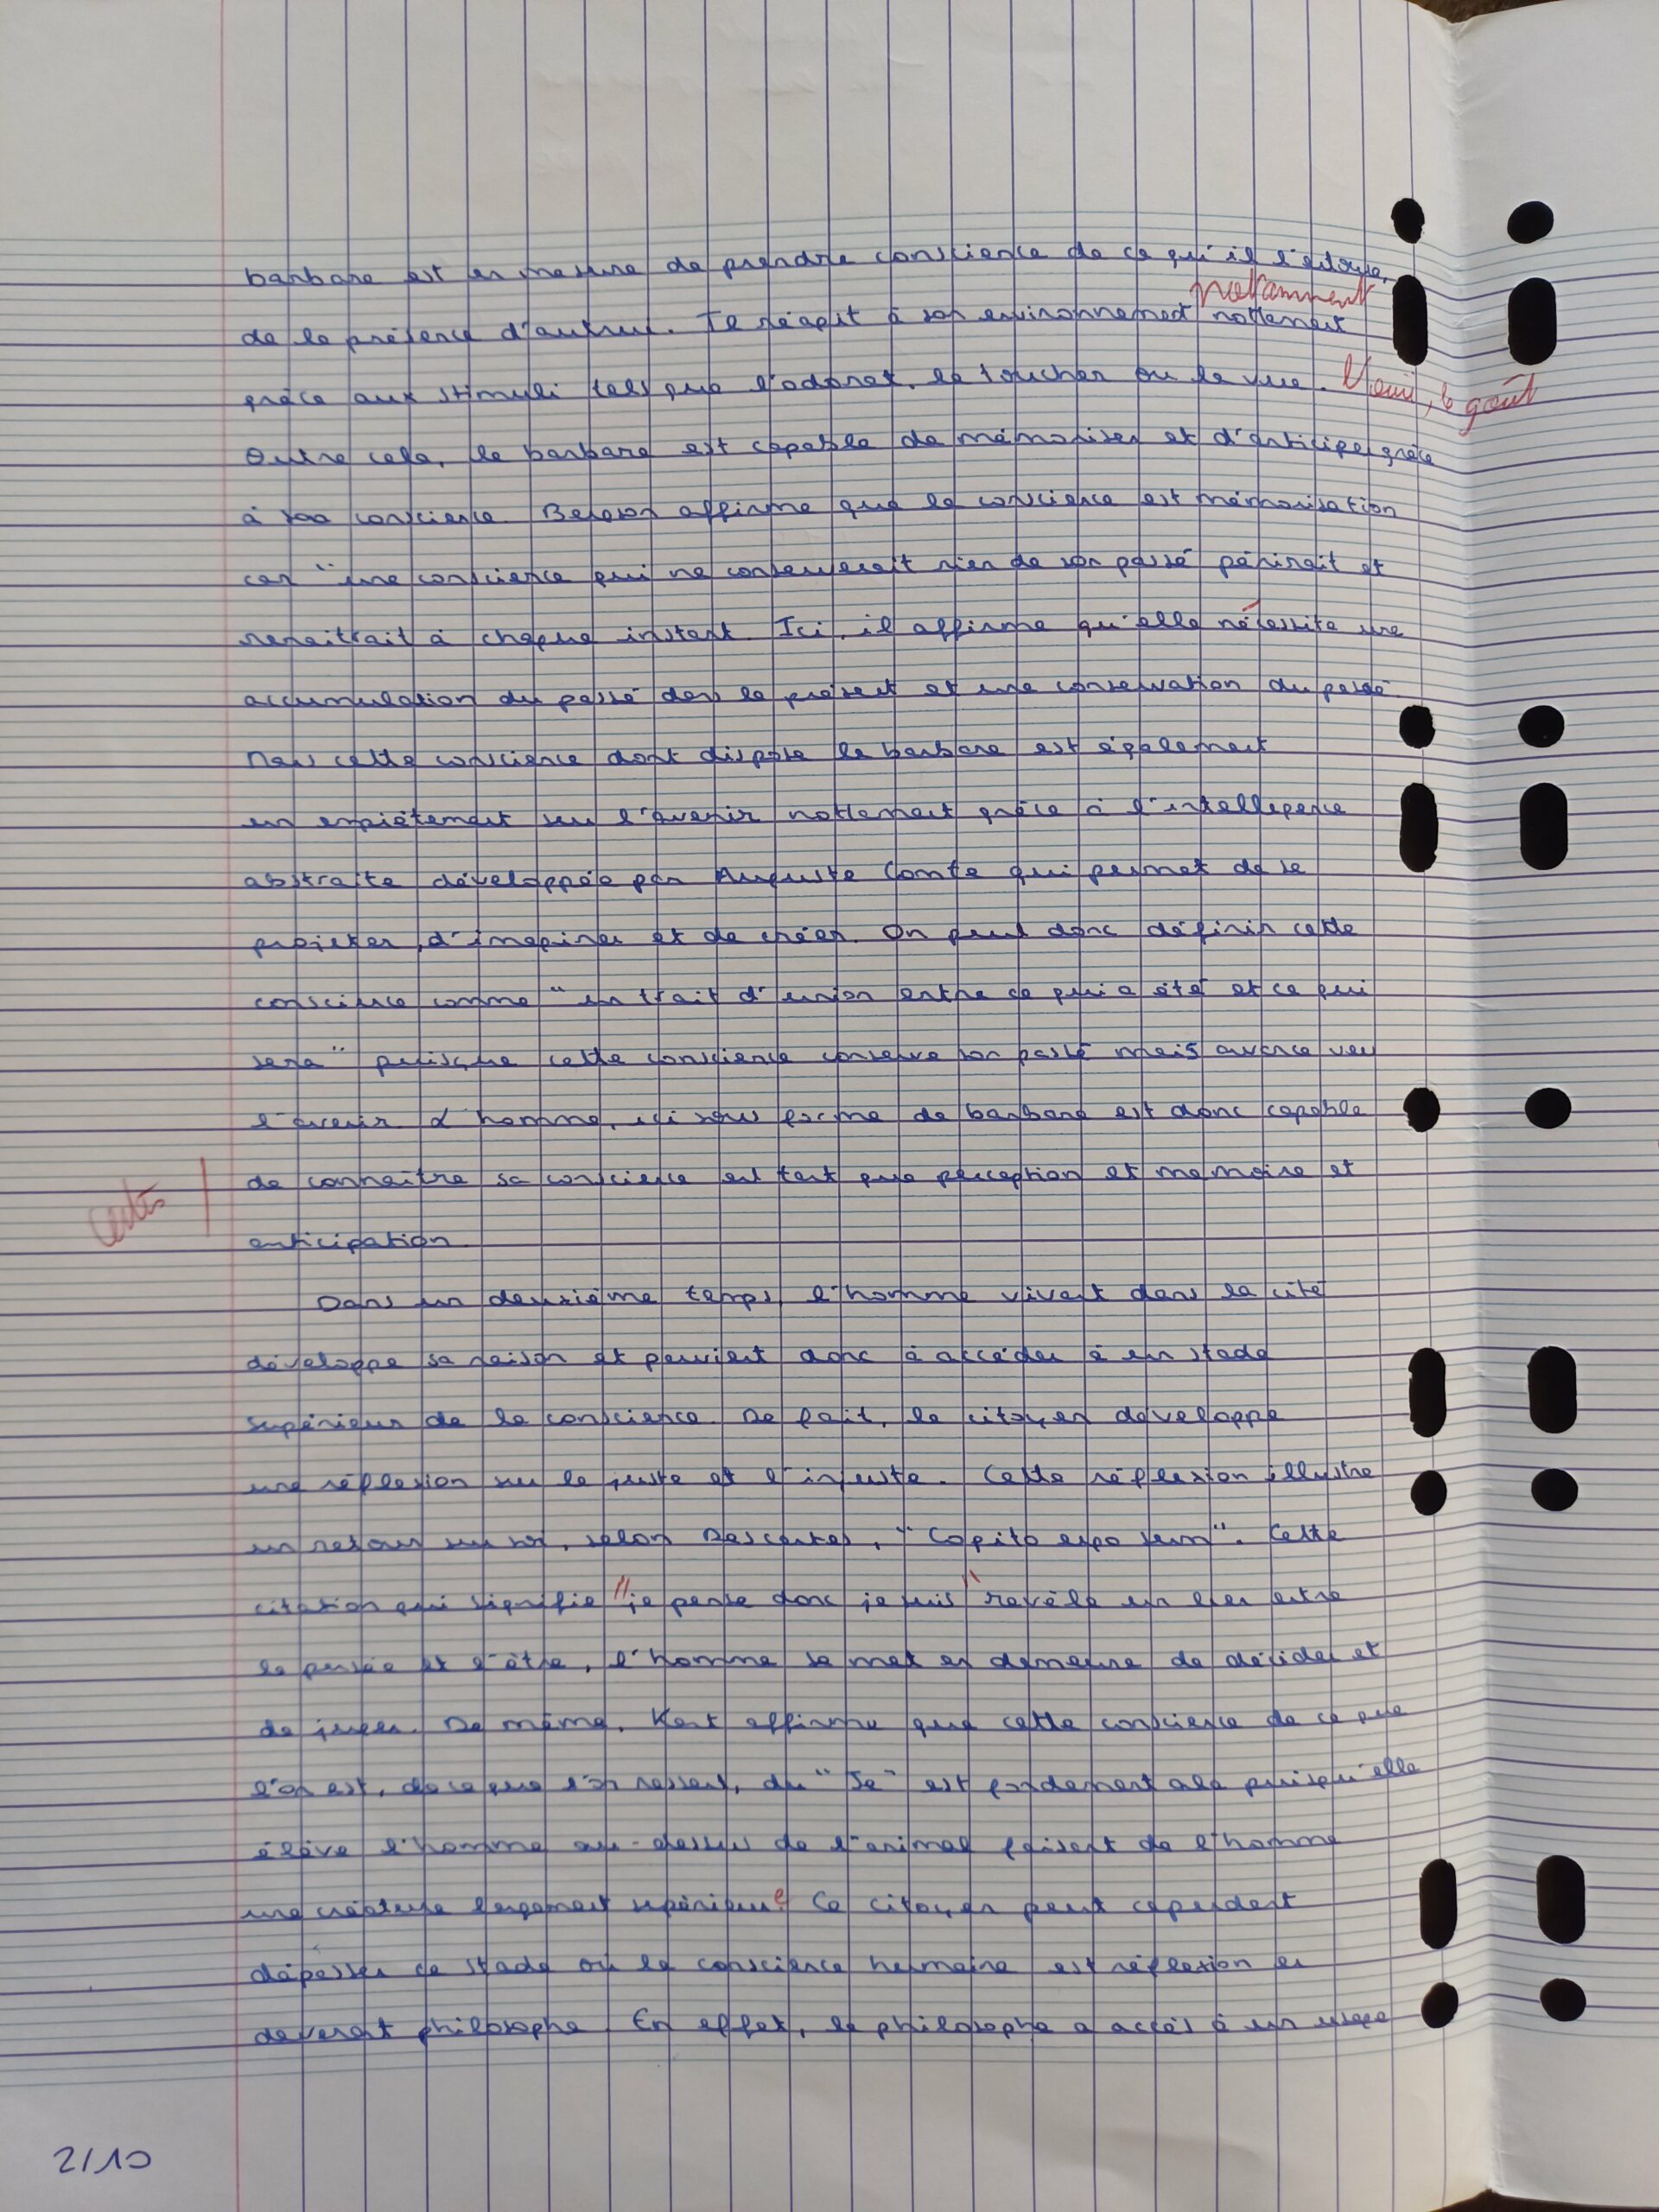 barbare est en mesure de prendre conscience de ce qu'il l'entoure,
de la présence d'autrui. Il réagit à son environnement nottement
notamment
grâce aux stimuli tels que l'odorat, le toucher ou la vue. l'ouïe, le goût
Outre cela, le barbare est capable de mémoriser et d'anticiper grâce
à sa conscience. Bergson affirme que la conscience est mémorisation
car "une conscience qui ne conserverait rien de son passé périrait et
renaîtrait à chaque instant. Ici, il affirme qu'elle nécessite une
accumulation du passé dans le présent et une conservation du passé.
Mais cette conscience dont dispose le barbare est également
un empiètement sur l'avenir nottement grâce à l'intellegence
abstraite développée par Auguste Comte qui permet de se
projeter, d'imaginer et de créer. On peut donc définir cette
conscience comme "un trait d'union entre ce qui a été et ce qui
sera" puisque cette conscience conserve son passé mais avance vers
l'avenir. L'homme, ici sous forme de barbare est donc capable
de connaître sa conscience en tant que perception et memoire et
certes
anticipation.
Dans un deuxième temps, l'homme vivant dans la cité
développe sa raison et parvient donc à accéder à un stade
supérieur de la conscience. De fait, le citoyen developpe
une réflexion sur le juste et l'injuste. Cette réflexion illustre
un retour sur soi, selon Descartes, "Cogito ergo sum". Cette
citation qui signifie "je pense donc je suis" revèle un lien entre
la pensée et l'être, l'homme se met en demeure de décider et
de juger. De même, Kant affirme que cette conscience de ce que
l'on est, de ce que l'on ressent, du "Je" est fondement ale puisqu'elle
élève l'homme au-dessus de l'animal faisant de l'homme
une créature largement supérieure. Ce citoyen peut cependant
dépasser ce stade où la conscience humaine est réflexion en
devenant philosophe. En effet, le philosophe a accès à un usage
2/10